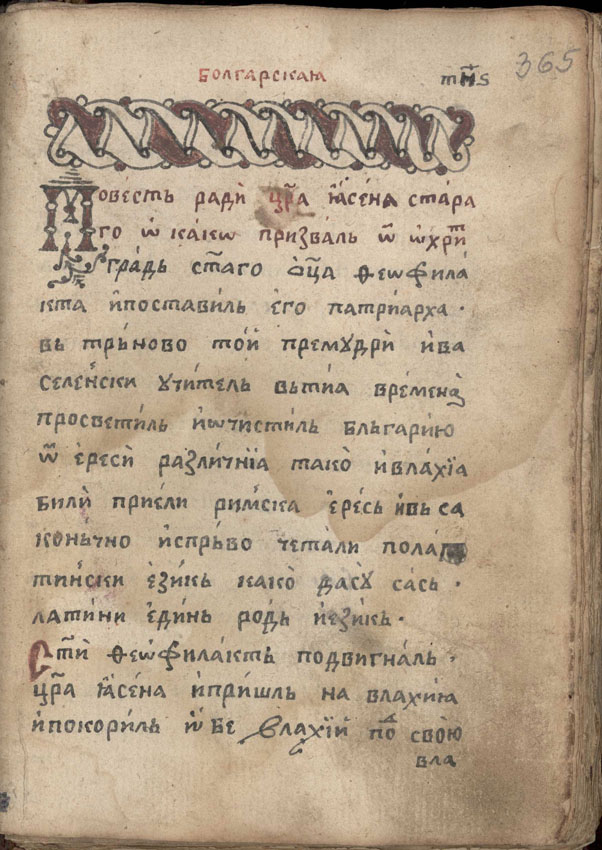 БОЛГАРСКАꙖ
тм҃ѕ
365
Повесть ради цр҃а іасена стара
го ѿ како призваль ѿ ѡхри
градь ст҃аго оц҃а ѳеѡфила
кта ипоставиль его патриарха ·
вь трьново той премудри ива
селенски учитель вьтиа времена
просветиль иѡчистиль бльгарию
ѿ ереси различнїа тако ивлахїа
били приели римска ересь ивь са
коньчно испрьво четали пола
тински езикь како дасу сась ·
латини единь родь иезикь ·
Ст҃и ѳеѡфилакть подвигналь ·
цр҃а іасена ипришль на влахию
ипокориль ѡбе влахїи под свою
вла